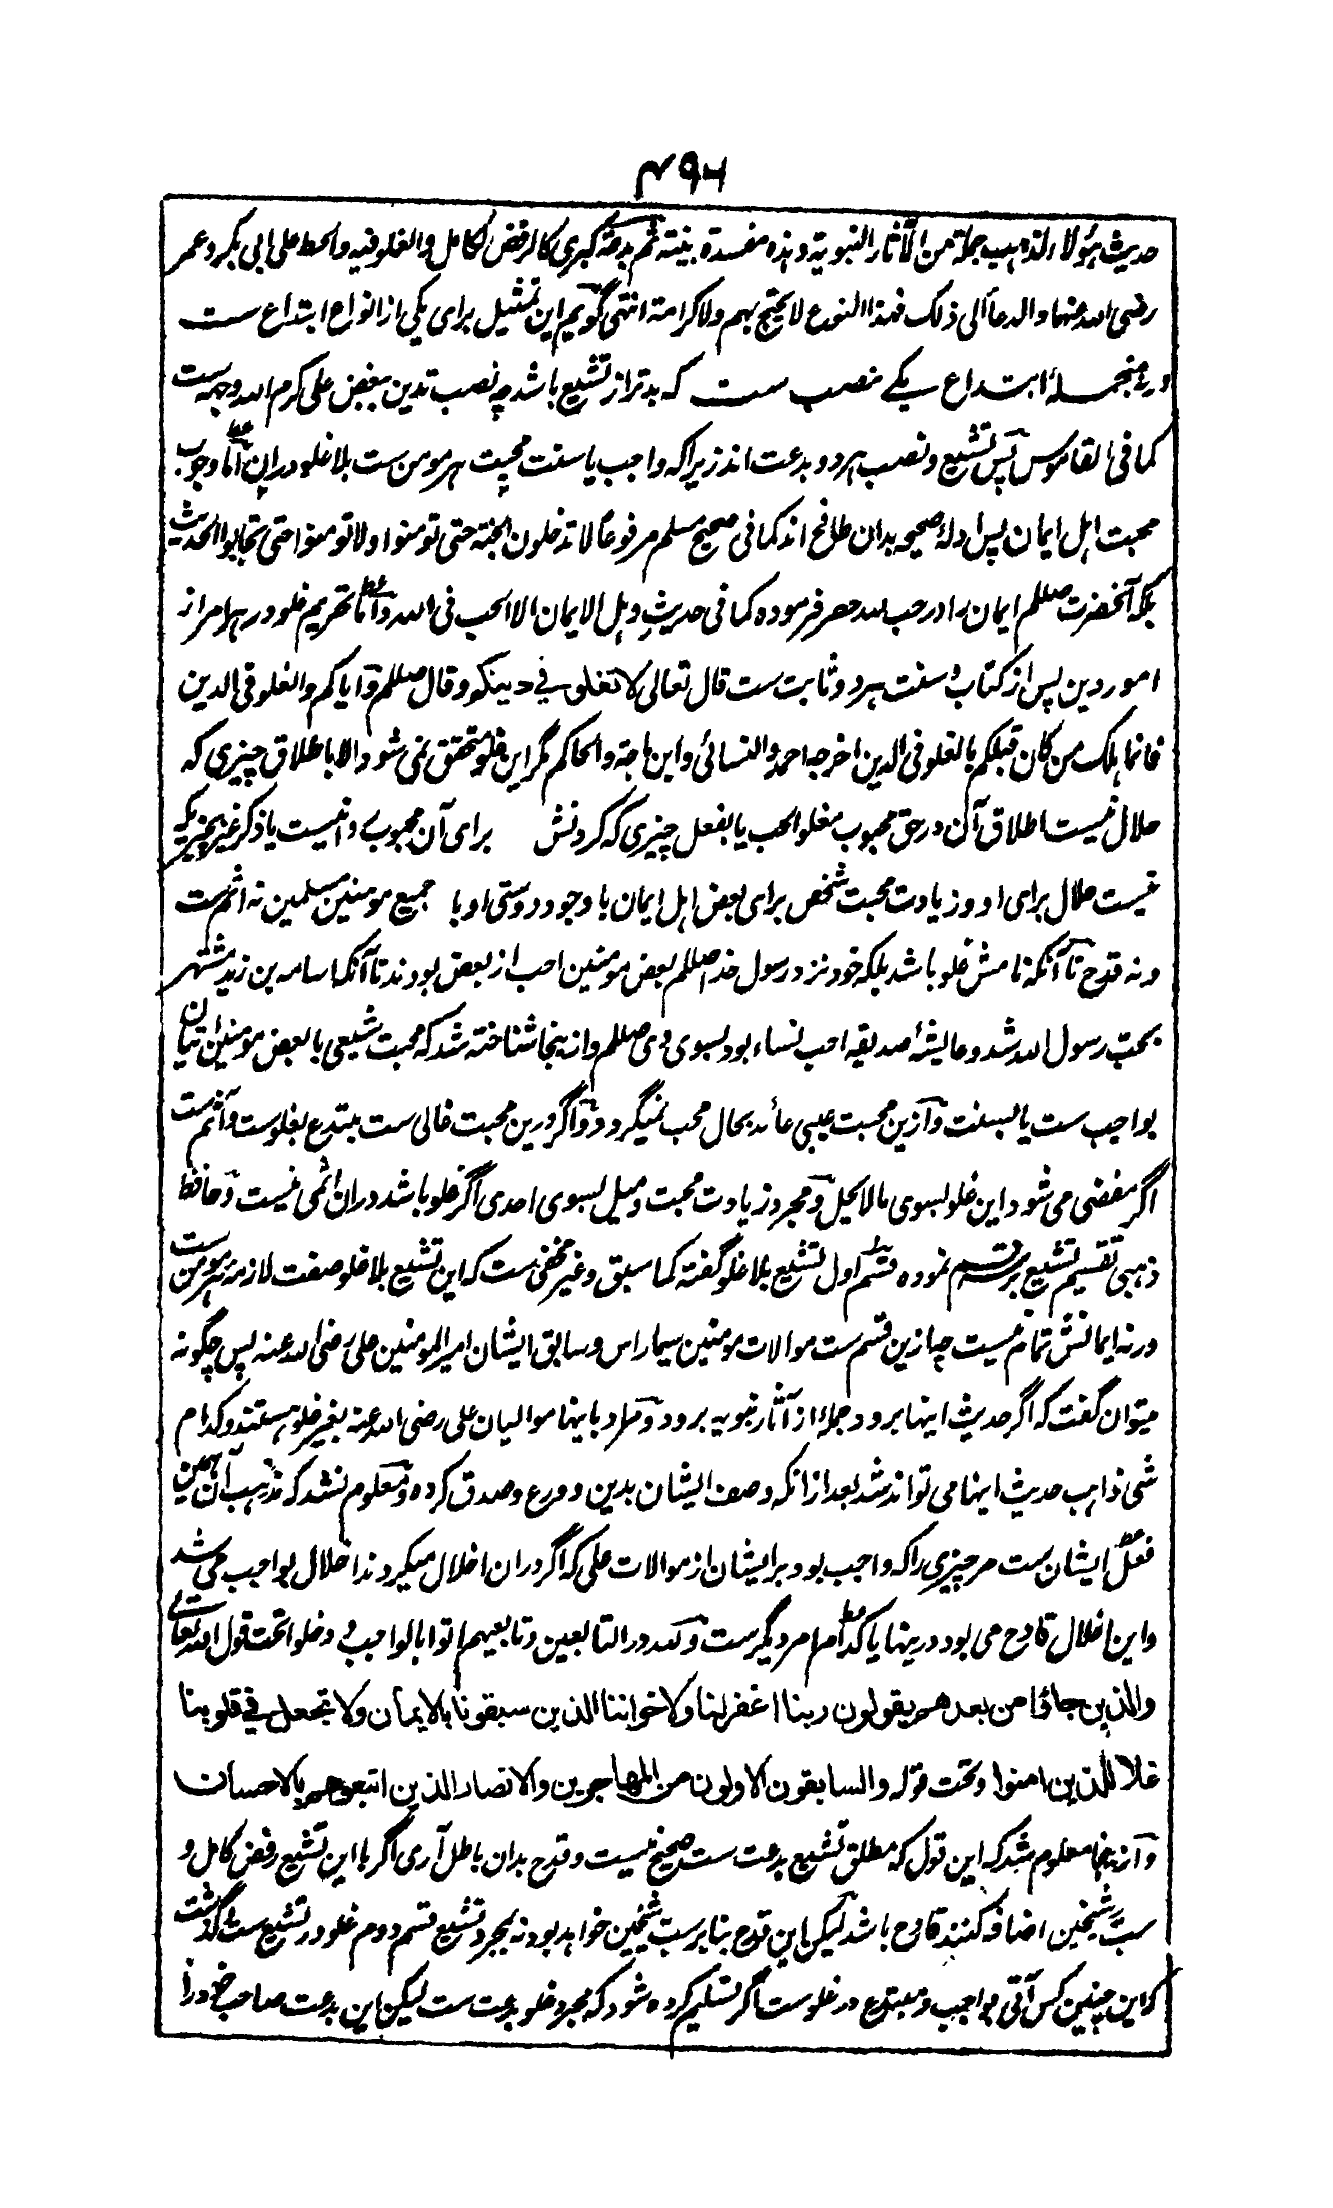 ۴۹۶
حدیث هؤلاء لذهب جملة من الآثار النبویة وهذه مفسدة بینة ثم بدعة کبری کالرفض الکامل والغلو فیه والحط علی ابی بکر وعمر
رضی الله عنهما والدعاء الی ذلک فهذا النوع لا یحتج بهم ولا کرامة انتهی گویم این تمثیل برای یکی از انواع ابتداع ست
و از منجمله ابتداع یکے نصب ست که بدتر از تشیع باشد چه نصب تدین ببغض علی کرم الله وجهه ست
کما فی القاموس پس تشیع و نصب هر دو بدعت اند زیرا که واجب یا سنت محبت هر مومن ست بلا غلو دران اما وجوب
محبت اهل ایمان پس ادله صحیحه بدان طافح اند کما فی صحیح مسلم مرفوعا لا تدخلون الجنة حتی تومنوا ولا تومنوا حتی تحابوا الحدیث
بلکه آنحضرت صللم ایمان را در حب لله حصر فرموده کما فی حدیث وهل الایمان الا الحب فی الله و اما تحریم غلو در هر امر از
امور دین پس از کتاب و سنت هر دو ثابت ست قال تعالی لا تغلوا فی دینکم وقال صللم وایاکم والغلو فی الدین
فانما هلک من کان قبلکم بالغلو فی الدین اخرجه احمد والنسائی وابن ماجة والحاکم مگر این غلو متحقق نمی شود الا باطلاق چیزی که
حلال نیست اطلاق آن در حق محبوب مغلو الحب یا بفعل چیزی که کردنش برای آن محبوب روا نیست یا ذکر غیر بچیزیکه
نیست حلال برای او و زیادت محبت شخص برای بعض اهل ایمان با وجود دوستی او با جمیع مومنین مسلمین نه اثم ست
و نه قدح تا آنکه نامش غلو باشد بلکه خود نزد رسول خدا صللم بعض مومنین احب از بعض بودند تا آنکه اسامه بن زید مشتهر
بحب رسول الله شد و عایشهٔ صدیقه احب نساء بود بسوی وی صللم و ازینجا شناخته شد که محبت شیعی با بعض مومنین اتیان
بواجب ست یا بسنت و ازین محبت عیبی عائد بحال محب نمیگردد و اگر درین محبت غالی ست مبتدع بغلوست و آثم ست
اگر مفضی می شود این غلو بسوی ما لا یحل و مجرد زیادت محبت و میل بسوی احدی اگر غلو باشد دران اثمی نیست و حافظ
ذهبی تقسیم تشیع بر دو قسم نموده قسم اول تشیع بلا غلو گفته کما سبق و غیر مخفی ست که این تشیع بلا غلو صفت لازمهٔ هر مومن ست
ورنه ایمانش تمام نیست چه ازین قسم ست موالات مومنین سیما راس و سابق ایشان امیرالمومنین علی رضی الله عنه پس چگونه
میتوان گفت که اگر حدیث اینها برود جملهٔ از آثار نبویه برود و مراد باینها موالیان علی رضی الله عنه بغیر غلو هستند و کدام
شی ذاهب حدیث اینها می تواند شد بعد از انکه وصف ایشان بدین و ورع و صدق کرده و معلوم نشد که مذهب آن همین
فعل ایشان ست مر چیزی را که واجب بود بر ایشان از موالات علی که اگر دران اخلال میکردند اخلال بواجب می شد
و این اخلال قادح می بود درینها یا کدام امر دیگرست و لله در التابعین و تابعیهم اتوا بالواجب و دخلوا تحت قول الله تعالے
والذین جاؤا من بعدهم یقولون ربنا اغفر لنا ولاخواننا الذین سبقونا بالایمان ولا تجعل فی قلوبنا
غلا للذین امنوا وتحت قوله والسابقون الاولون من المهاجرین والانصار الذین اتبعوهم بالاحسان
و ازینجا معلوم شد که این قول که مطلق تشیع بدعت ست صحیح نیست و قدح بدان باطل آری اگر با این تشیع رفض کامل و
سب شیخین اضافه کنند قادح باشد لیکن این قدح بنا بر سب شیخین خواهد بود نه بمجرد تشیع قسم دوم غلو در تشیع ست گذشت
که این چنین کس آتی بواجب و مبتدع در غلوست اگر تسلیم کرده شود که مجرد غلو بدعت ست لیکن این بدعت صاحب خود را